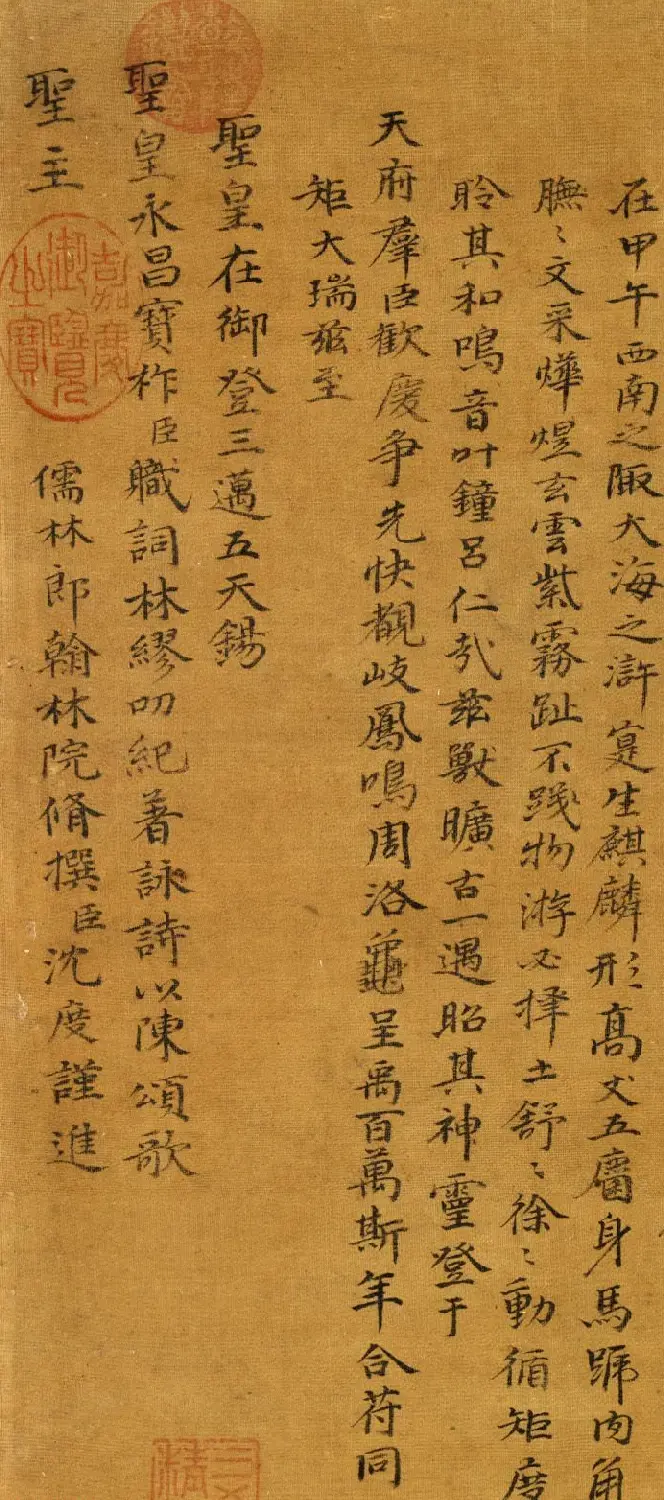 在甲午西南之陬大海之滸寔生麒麟形髙丈五麕身馬蹏肉角
膴〻文采燁煜玄雲紫霧趾不踐物游必擇土舒〻徐〻動循矩度
聆其和鳴音叶鐘呂仁㢤茲獸曠古一遇昭其神靈登于
天府羣臣歡慶争先快覩岐鳳鳴周洛龜呈禹百萬斯年合符同
矩大瑞茲至
聖皇在御登三邁五天錫
聖皇永昌寶祚臣職詞林繆叨紀著詠詩以陳頌歌
聖主
儒林郎翰林院脩撰臣沈度謹進
嘉慶御覽之寶